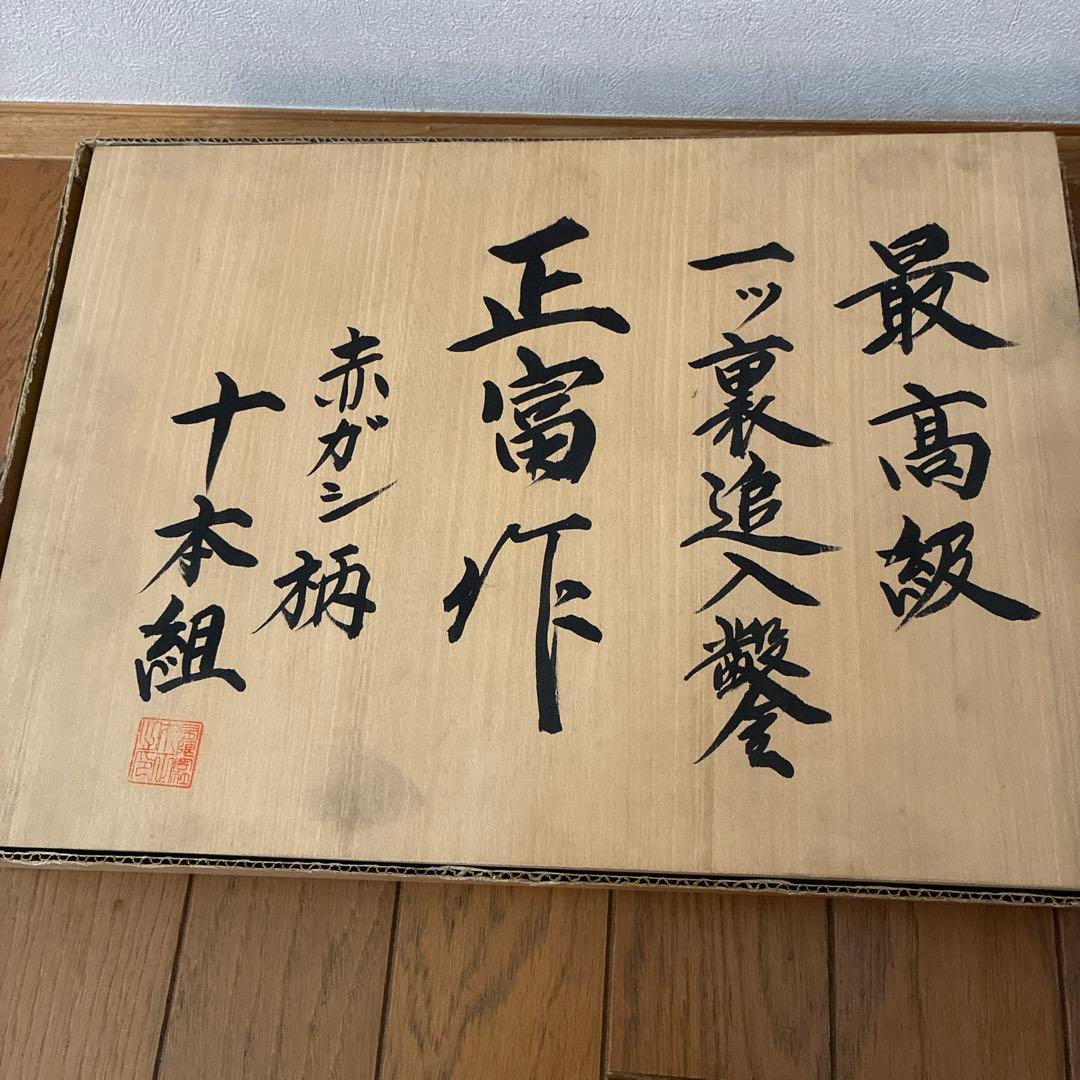 最高級
一ッ裏追入鑿
正富作
赤ガシ柄
十本組